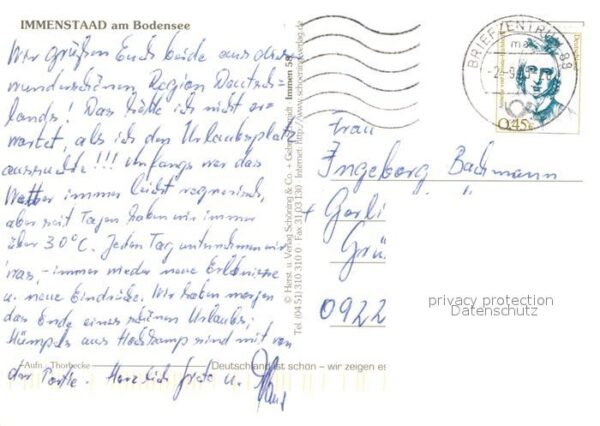 IMMENSTAAD am Bodensee
Wir grüßen Euch beide aus dieser
wunderschönen Region Deutsch-
lands! Das hätte ich nicht er-
wartet, als ich den Urlaubsplatz
aussuchte!!! Anfangs war das
Wetter immer leicht regnerisch,
aber seit Tagen haben wir immer
über 30°C. Jeden Tag unternehmen wir
was, - immer wieder neue Erlebnisse
u. neue Eindrücke. Wir haben morgen
das Ende eines schönen Urlaubes;
aus sind mit von
der Partie. Herzlich Grete u. Hans
Aufn.: Thorbecke
Deutschland ist schön – wir zeigen es
© Herst. u. Verlag Schöning & Co. + Gebrüder Schmidt Immen 58
Tel. (04 51) 310 310 0 Fax 31 03 130 Internet: http://www.schoening-verlag.de
BRIEFZENTRUM 88
ma
-2.-9.
Deutschland
0,45€
Frau
Ingeborg Bachmann
+ Gerli "
Grü
0922
privacy protection
Datenschutz